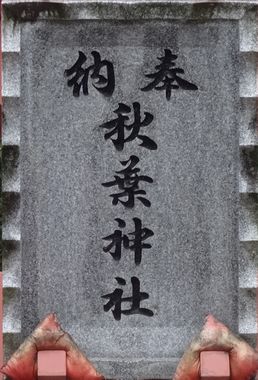 奉納
秋葉神社